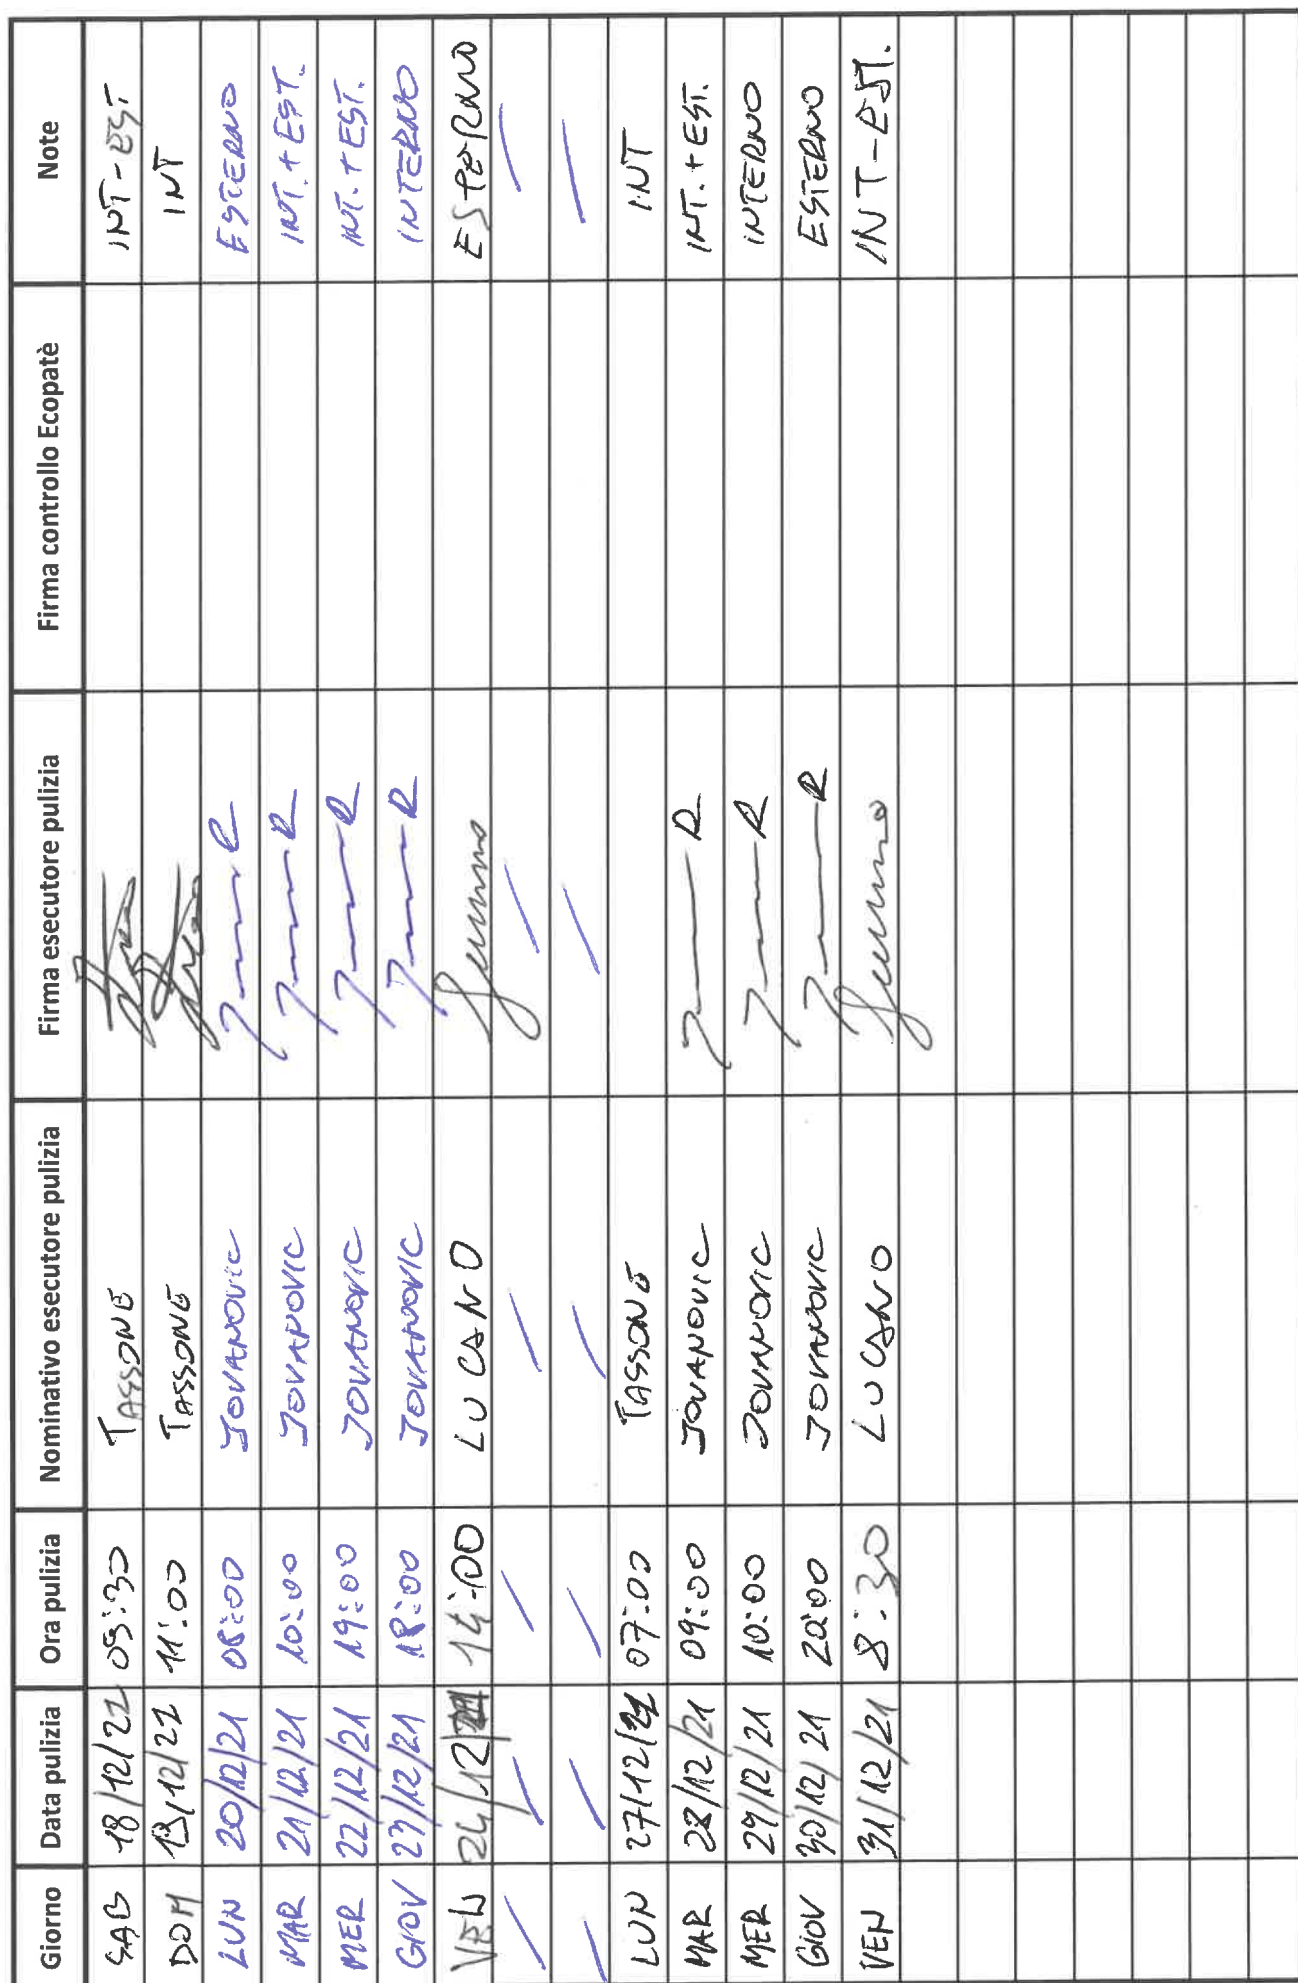 Giorno Data pulizia Ora pulizia Nominativo esecutore pulizia Firma esecutore pulizia Firma controllo Ecopatè Note
SAB 18/12/21 09:30 TASSONE INT-EST
DOM 19/12/21 11:00 TASSONE INT
LUN 20/12/21 08:00 JOVANOVIC ESTERNO
MAR 21/12/21 10:00 JOVANOVIC INT.+EST.
MER 22/12/21 19:00 JOVANOVIC INT.+EST.
GIOV 23/12/21 18:00 JOVANOVIC INTERNO
VEN 24/12/21 14:00 LUCANO ESTERNO
/ / / / / /
/ / / / / /
LUN 27/12/21 07:00 TASSONE INT
MAR 28/12/21 09:00 JOVANOVIC INT.+EST.
MER 29/12/21 10:00 JOVANOVIC INTERNO
GIOV 30/12/21 20:00 JOVANOVIC ESTERNO
VEN 31/12/21 8:30 LUCANO INT-EST.